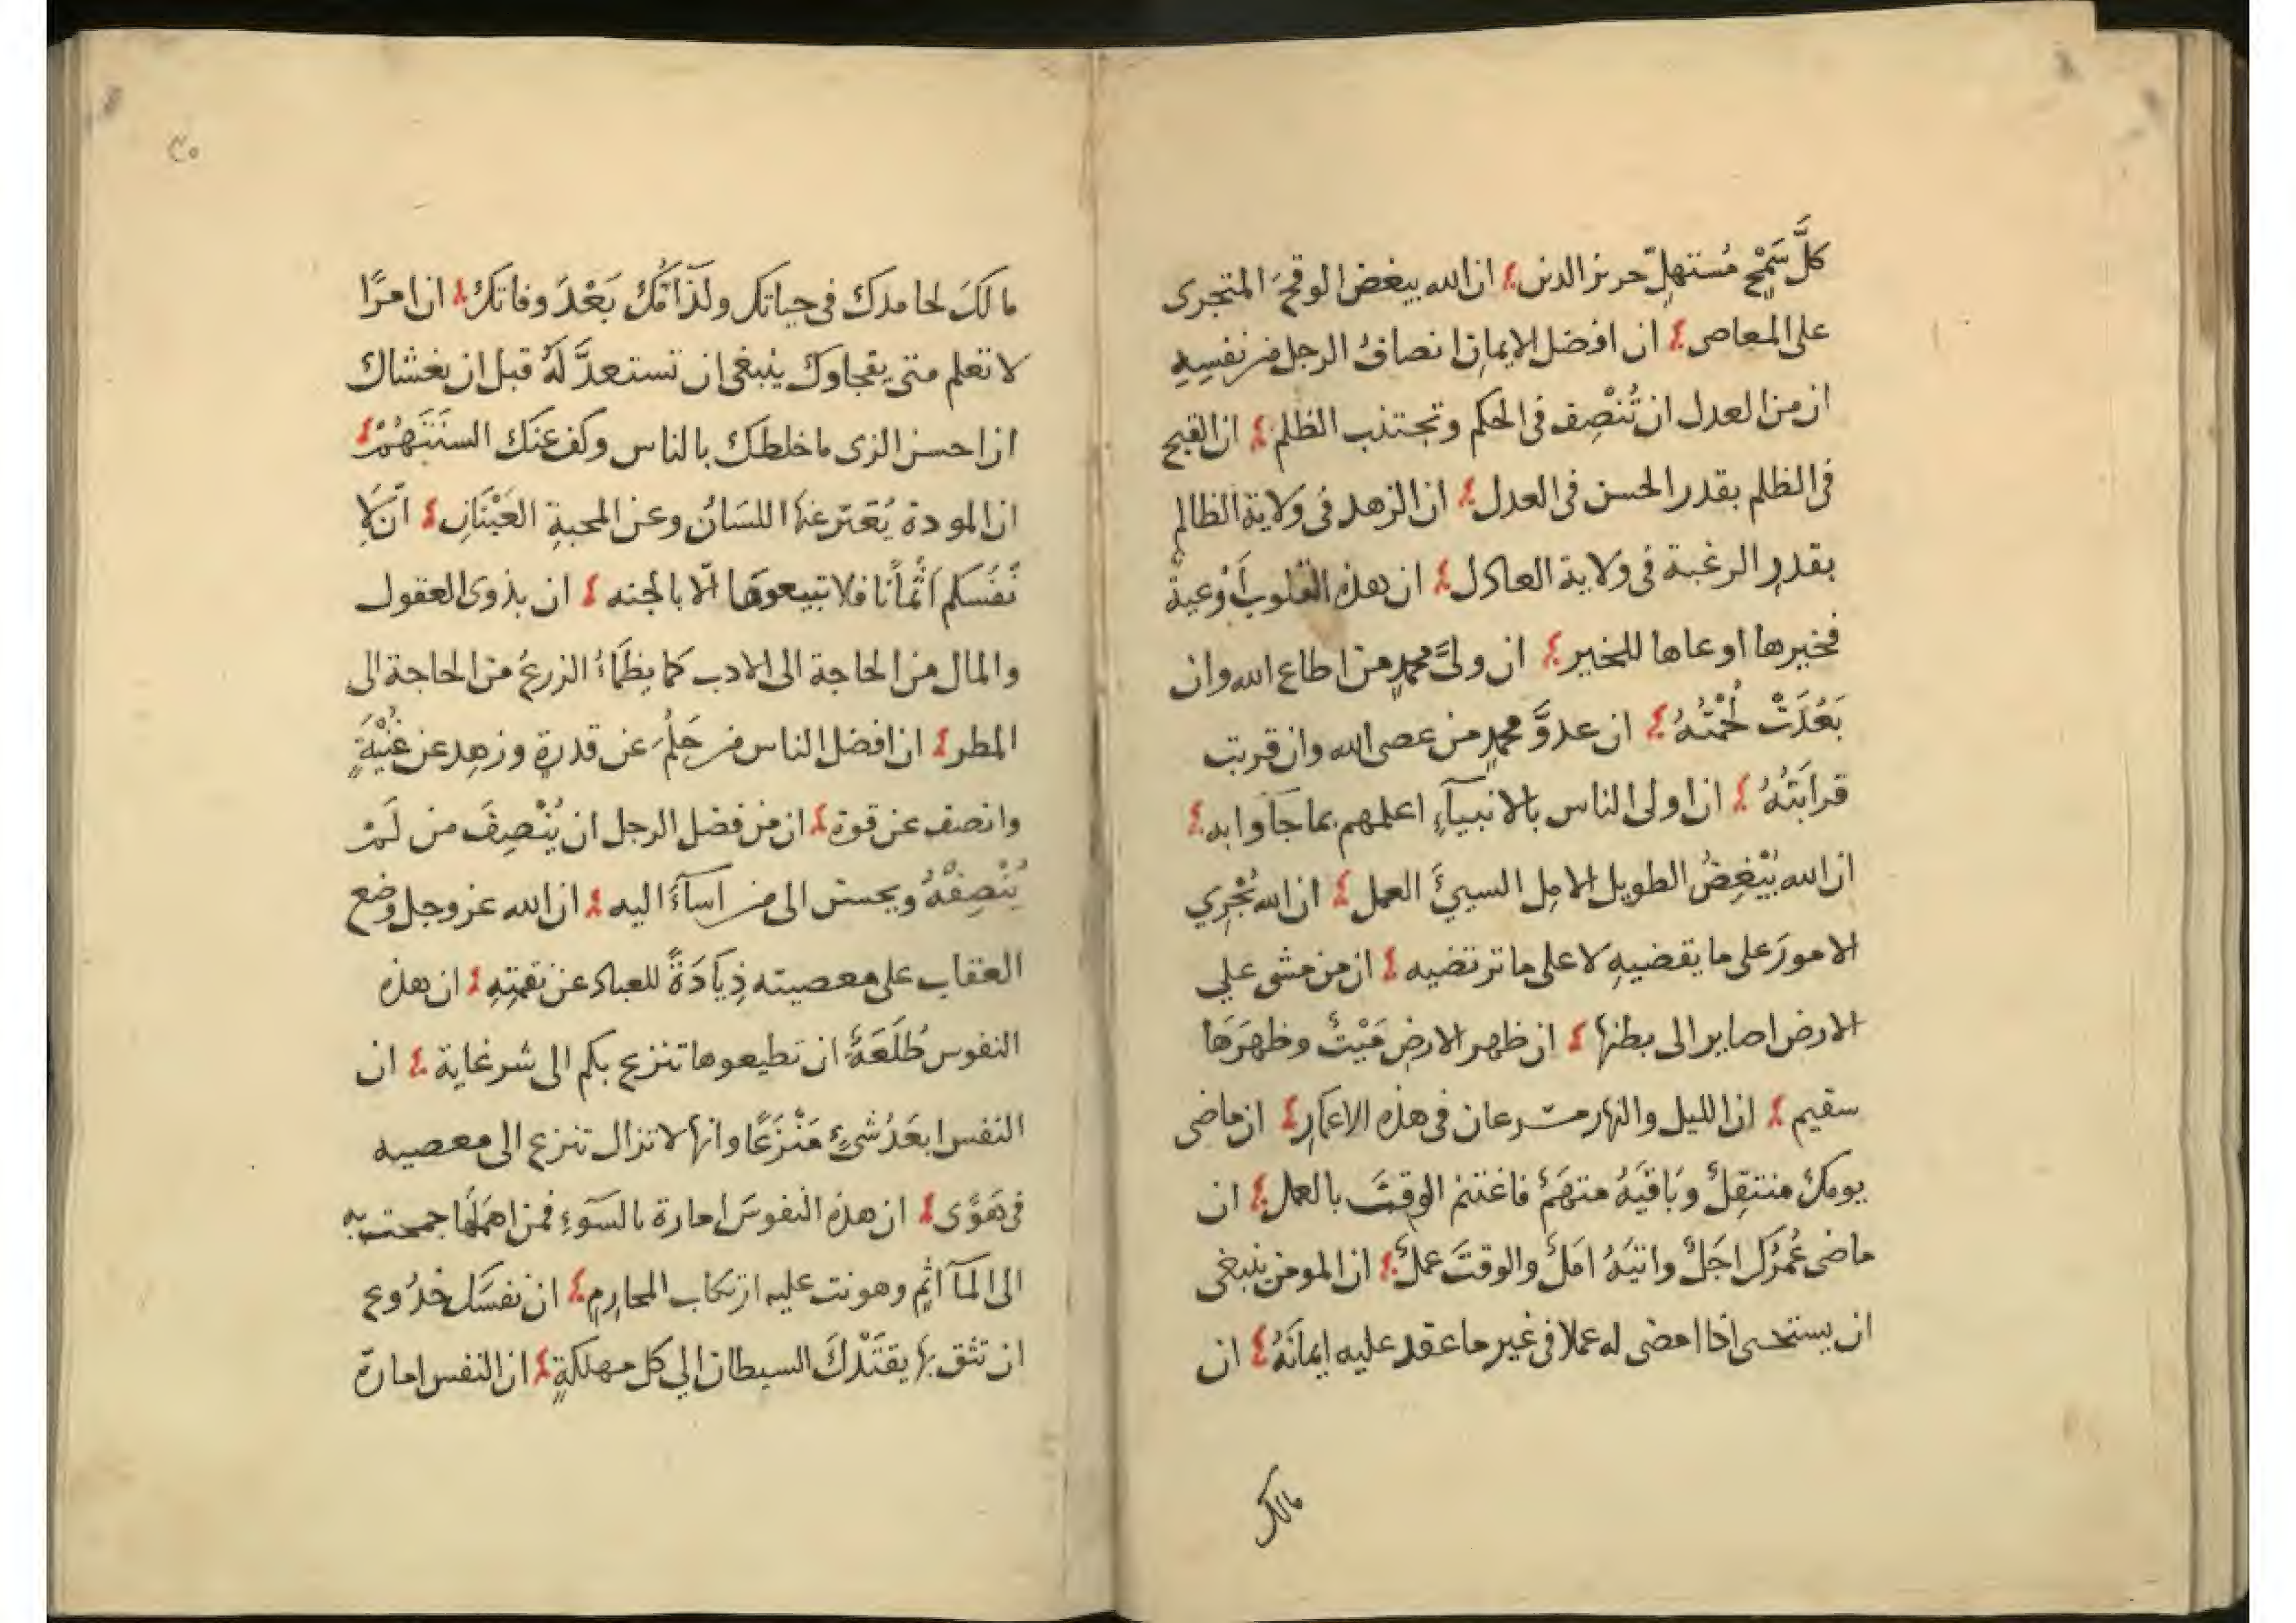 كلَّ سَمْحٍ مُستهلِّ حريز الدين ان الله يبغض الوقحَ المتجرى
على المعاصى ان افضل الايمانِ انصافُ الرجل من نفسِهِ
ان من العدل ان تُنْصِف فى الحكم وتجتنب الظلم ان القبح
فى الظلم بقدر الحسن فى العدل ان الزهد فى ولاية الظالم
بقدرِ الرغبة فى ولاية العادل ان هذه القلوب أَوْعيةٌ
فخيرها اوعاها للخير ان ولىَّ محمدٍ من اطاع الله وان
بَعُدَتْ لُحْمَتُهُ ان عدوَّ محمدٍ من عصى الله وان قربت
قرابَتُهُ ان اولى الناس بالانبيآءِ اعلمهم بما جَآوا به
ان الله يُبْغِضُ الطويل الامل السيئَ العمل ان الله يُجْرِي
الامورَ على ما يقضيهِ لا على ما ترتضيه ان من مشى علي
الارض اصاير الى بطنها ان ظهر الارض مَيْتٌ وظهرَها
سقيم ان الليل والنهار مسرعان فى هذه الاعمارِ ان ماضى
يومكَ منتقِلٌ وبَاقيَهُ متهَمٌ فاغتنم الوقتَ بالعمل ان
ماضى عُمُرِكَ اجَلٌ واتيَهُ امَلٌ والوقتَ عملٌ ان المومن ينبغى
ان يستحيى اذا امضى له عملا فى غير ما عقد عليه ايمانَهُ ان
مالك
٢٠
ما لكَ لحامدك فى حياتك ولذَآمِّكَ بَعْدَ وفاتكَ ان امرًا
لا تعلم متى يفجاوك ينبغى ان تستعدَّ لَهُ قبل ان يغشاك
ان احسن الزى ما خلطك بالناس وكف عنك السنَتَهُمْ
ان المودة يُعَبّر عنها اللسَانُ وعن المحبةِ العَيْنَانِ انَّ لِاَ
نْفُسكم اَثْمَانًا فلا تبيعوهَا الّا بالجنه ان بذوى العقول
والمال من الحاجة الى الادب كما يظمَاءُ الزرعُ من الحاجة الى
المطر ان افضل الناس من حَلُمَ عن قدرةٍ وزهِد عن غُنْيَةٍ
وانصف عن قوة ان من فضل الرجل ان يُنْصِفَ من لَمْ
يُنْصِفْهُ ويحسن الى من اسآءَ اليه ان الله عز وجل وضع
العقاب على معصيته ذِيَادَةً للعباد عن نقمتِهِ ان هذه
النفوس طُلَعَةٌ ان تطيعوها تنزع بكم الى شر غاية ان
النفس ابعَدُ شىءٍ مَنْزَعًا وانها لا تزال تنزع الى معصيه
فى هَوًى ان هذه النفوسَ امارة بالسَوءِ فمن اهمَلَها جمحت به
الى المآ اثِمِ وهونت عليه ارتكاب المحارِمِ ان نفسَكَ خَدُوع
ان تثق بها يقتَدْكَ السيطان الي كل مهلكةٍ ان النفس امارة